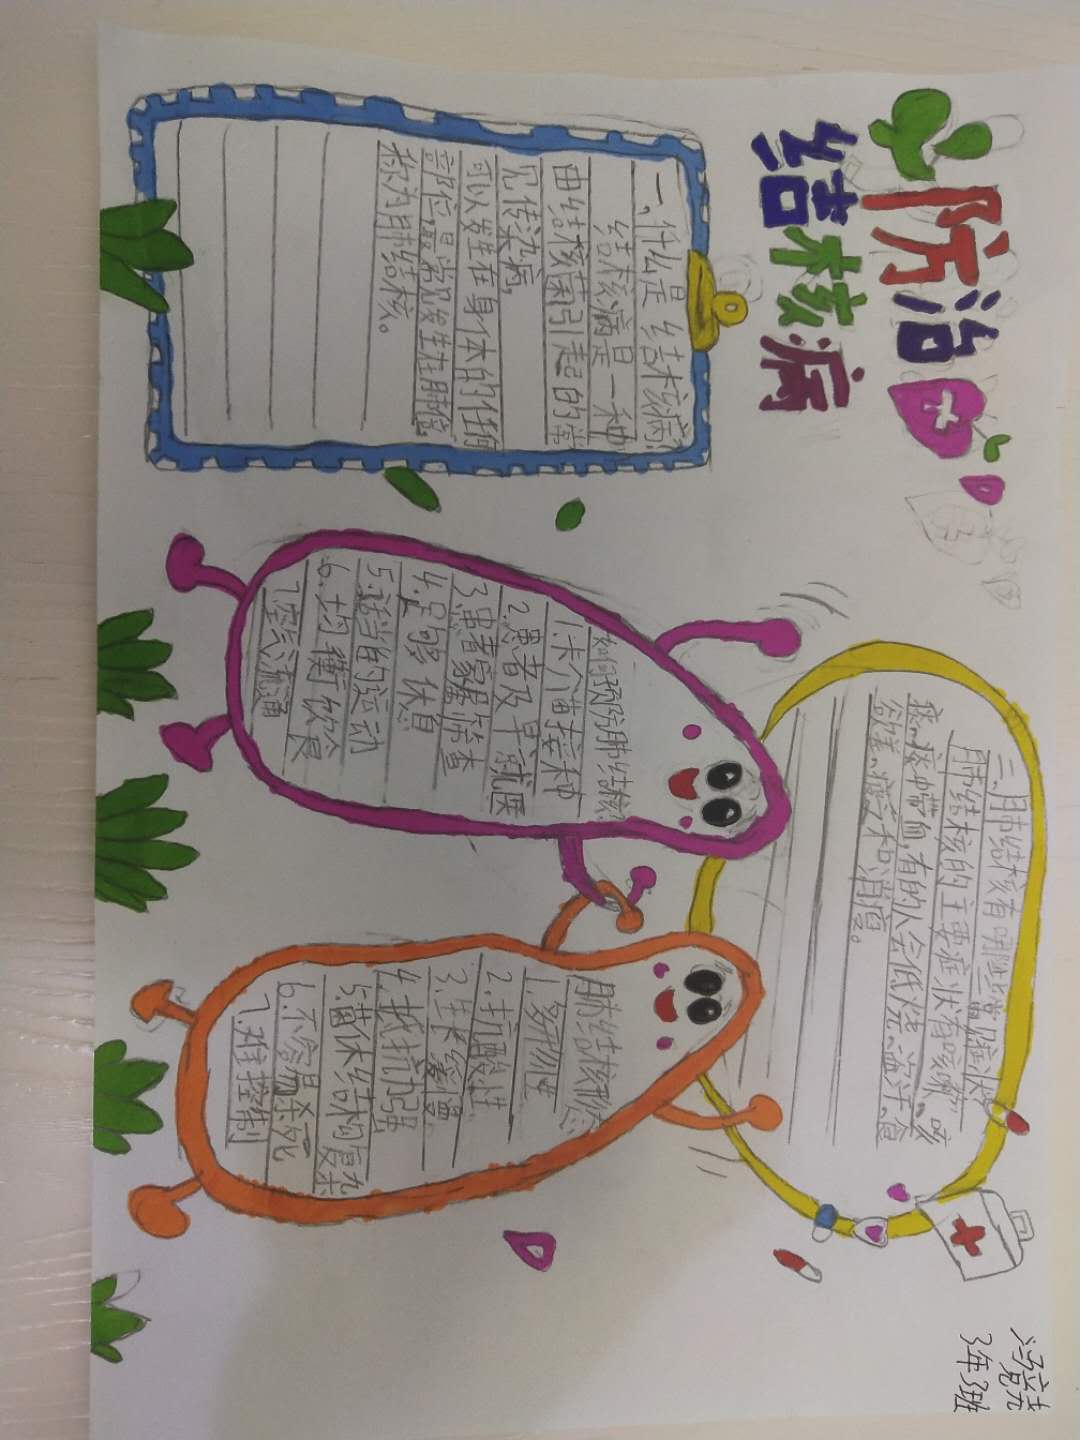 防治
结核病
一、什么是结核病
结核病是一种
由结核菌引起的常
见传染病,
可以发生在身体的任何
部位,最常见发生在肺部,
称为肺结核。
二、肺结核有哪些常见症状
肺结核的主要症状有咳嗽、咳
痰、痰中带血,有的人会低烧、盗汗、食
欲差、疲乏和消瘦。
如何预防肺结核
1.卡介苗接种
2.患者及早就医
3.患者家属筛查
4.足够休息
5.适当的运动
6.均衡饮食
7.空气流通
肺结核形态
1.多形性
2.抗酸性
3.生长缓慢
4.抵抗力强
5.菌体结构复杂
6.不容易杀死
7.难控制
3年3班